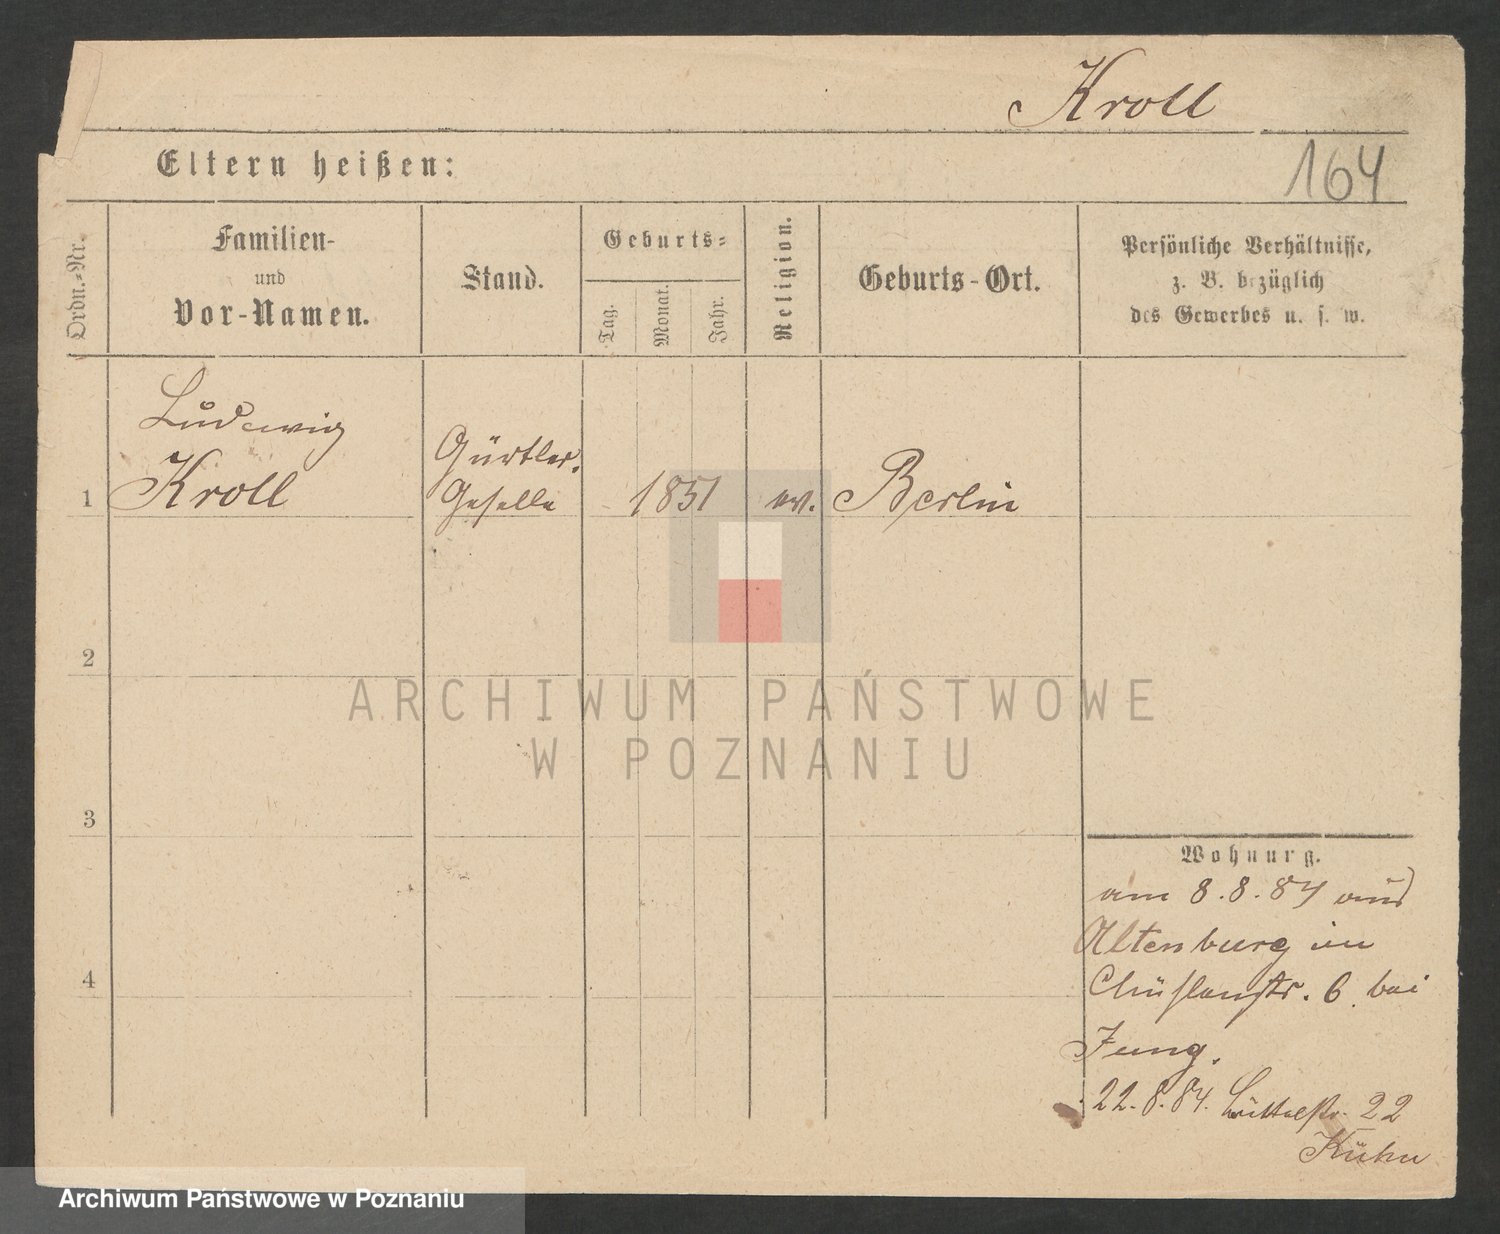 Kroll
Eltern heißen:
164
Ordn.-Nr.
Familien-
und
Vor-Namen.
Stand.
Geburts-
Tag.
Monat.
Jahr.
Religion.
Geburts-Ort.
Persönliche Verhältnisse,
z. B. bezüglich
des Gewerbes u. s. w.
Ludewig
Kroll
Gürtler.
Geselle
1
1851
ev.
Berlin
2
ARCHIWUM PAŃSTWOWE
W POZNANIU
3
Wohnung.
am 8.8.84 aus
Altenburg in
6 bei
Jung.
4
22.8.84. 22
Kühn
Archiwum Państwowe w Poznaniu